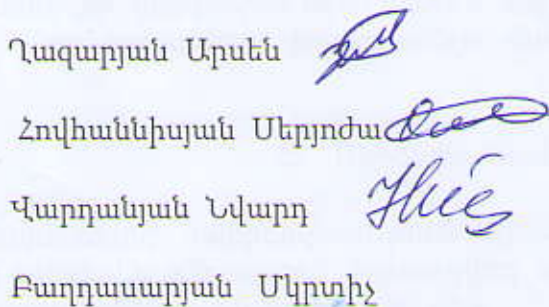 Ղազարյան Արսեն
Հովհաննիսյան Սերյոժա
Վարդանյան Նվարդ
Բաղդասարյան Մկրտիչ